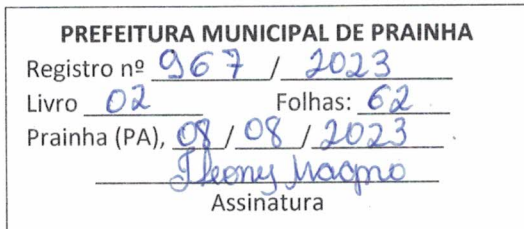 PREFEITURA MUNICIPAL DE PRAINHA
Registro nº 967 / 2023
Livro 02 Folhas: 62
Prainha (PA), 08 / 08 / 2023
Magno
Assinatura